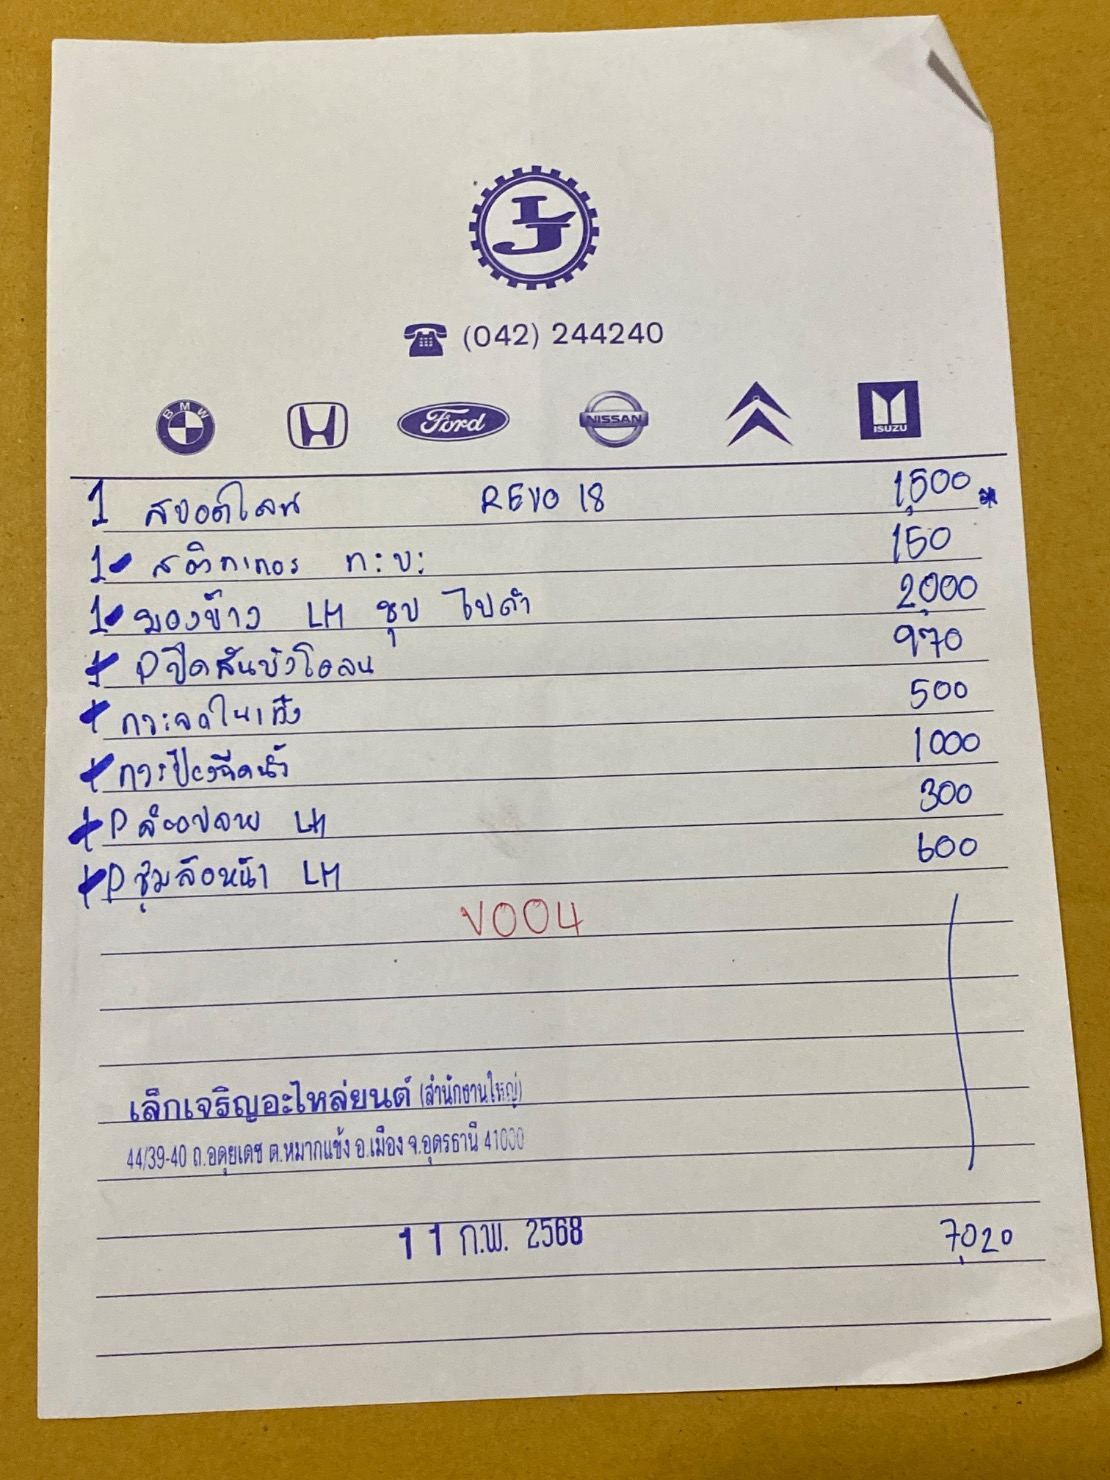 LJ
(042) 244240
BMW Ford NISSAN ISUZU
1 สปอตไลน์ REVO 18 1,500
1 สติกเกอร ท:บ: 150
1 มองข้าง LH ชุบ ไบดำ 2,000
1 Pปิดสันบังโคลน 970
1 กระจกในเก๋ง 500
1 กระป๋องฉีดน้ำ 1000
1 P ล้อปลาย LH 300
1 P ซุ้มล้อหน้า LH 600
V004
เล็กเจริญอะไหล่ยนต์ (สำนักงานใหญ่)
44/39-40 ถ.อดุยเดช ต.หมากแข้ง อ.เมือง จ.อุดรธานี 41000
11 ก.พ. 2568 7,020